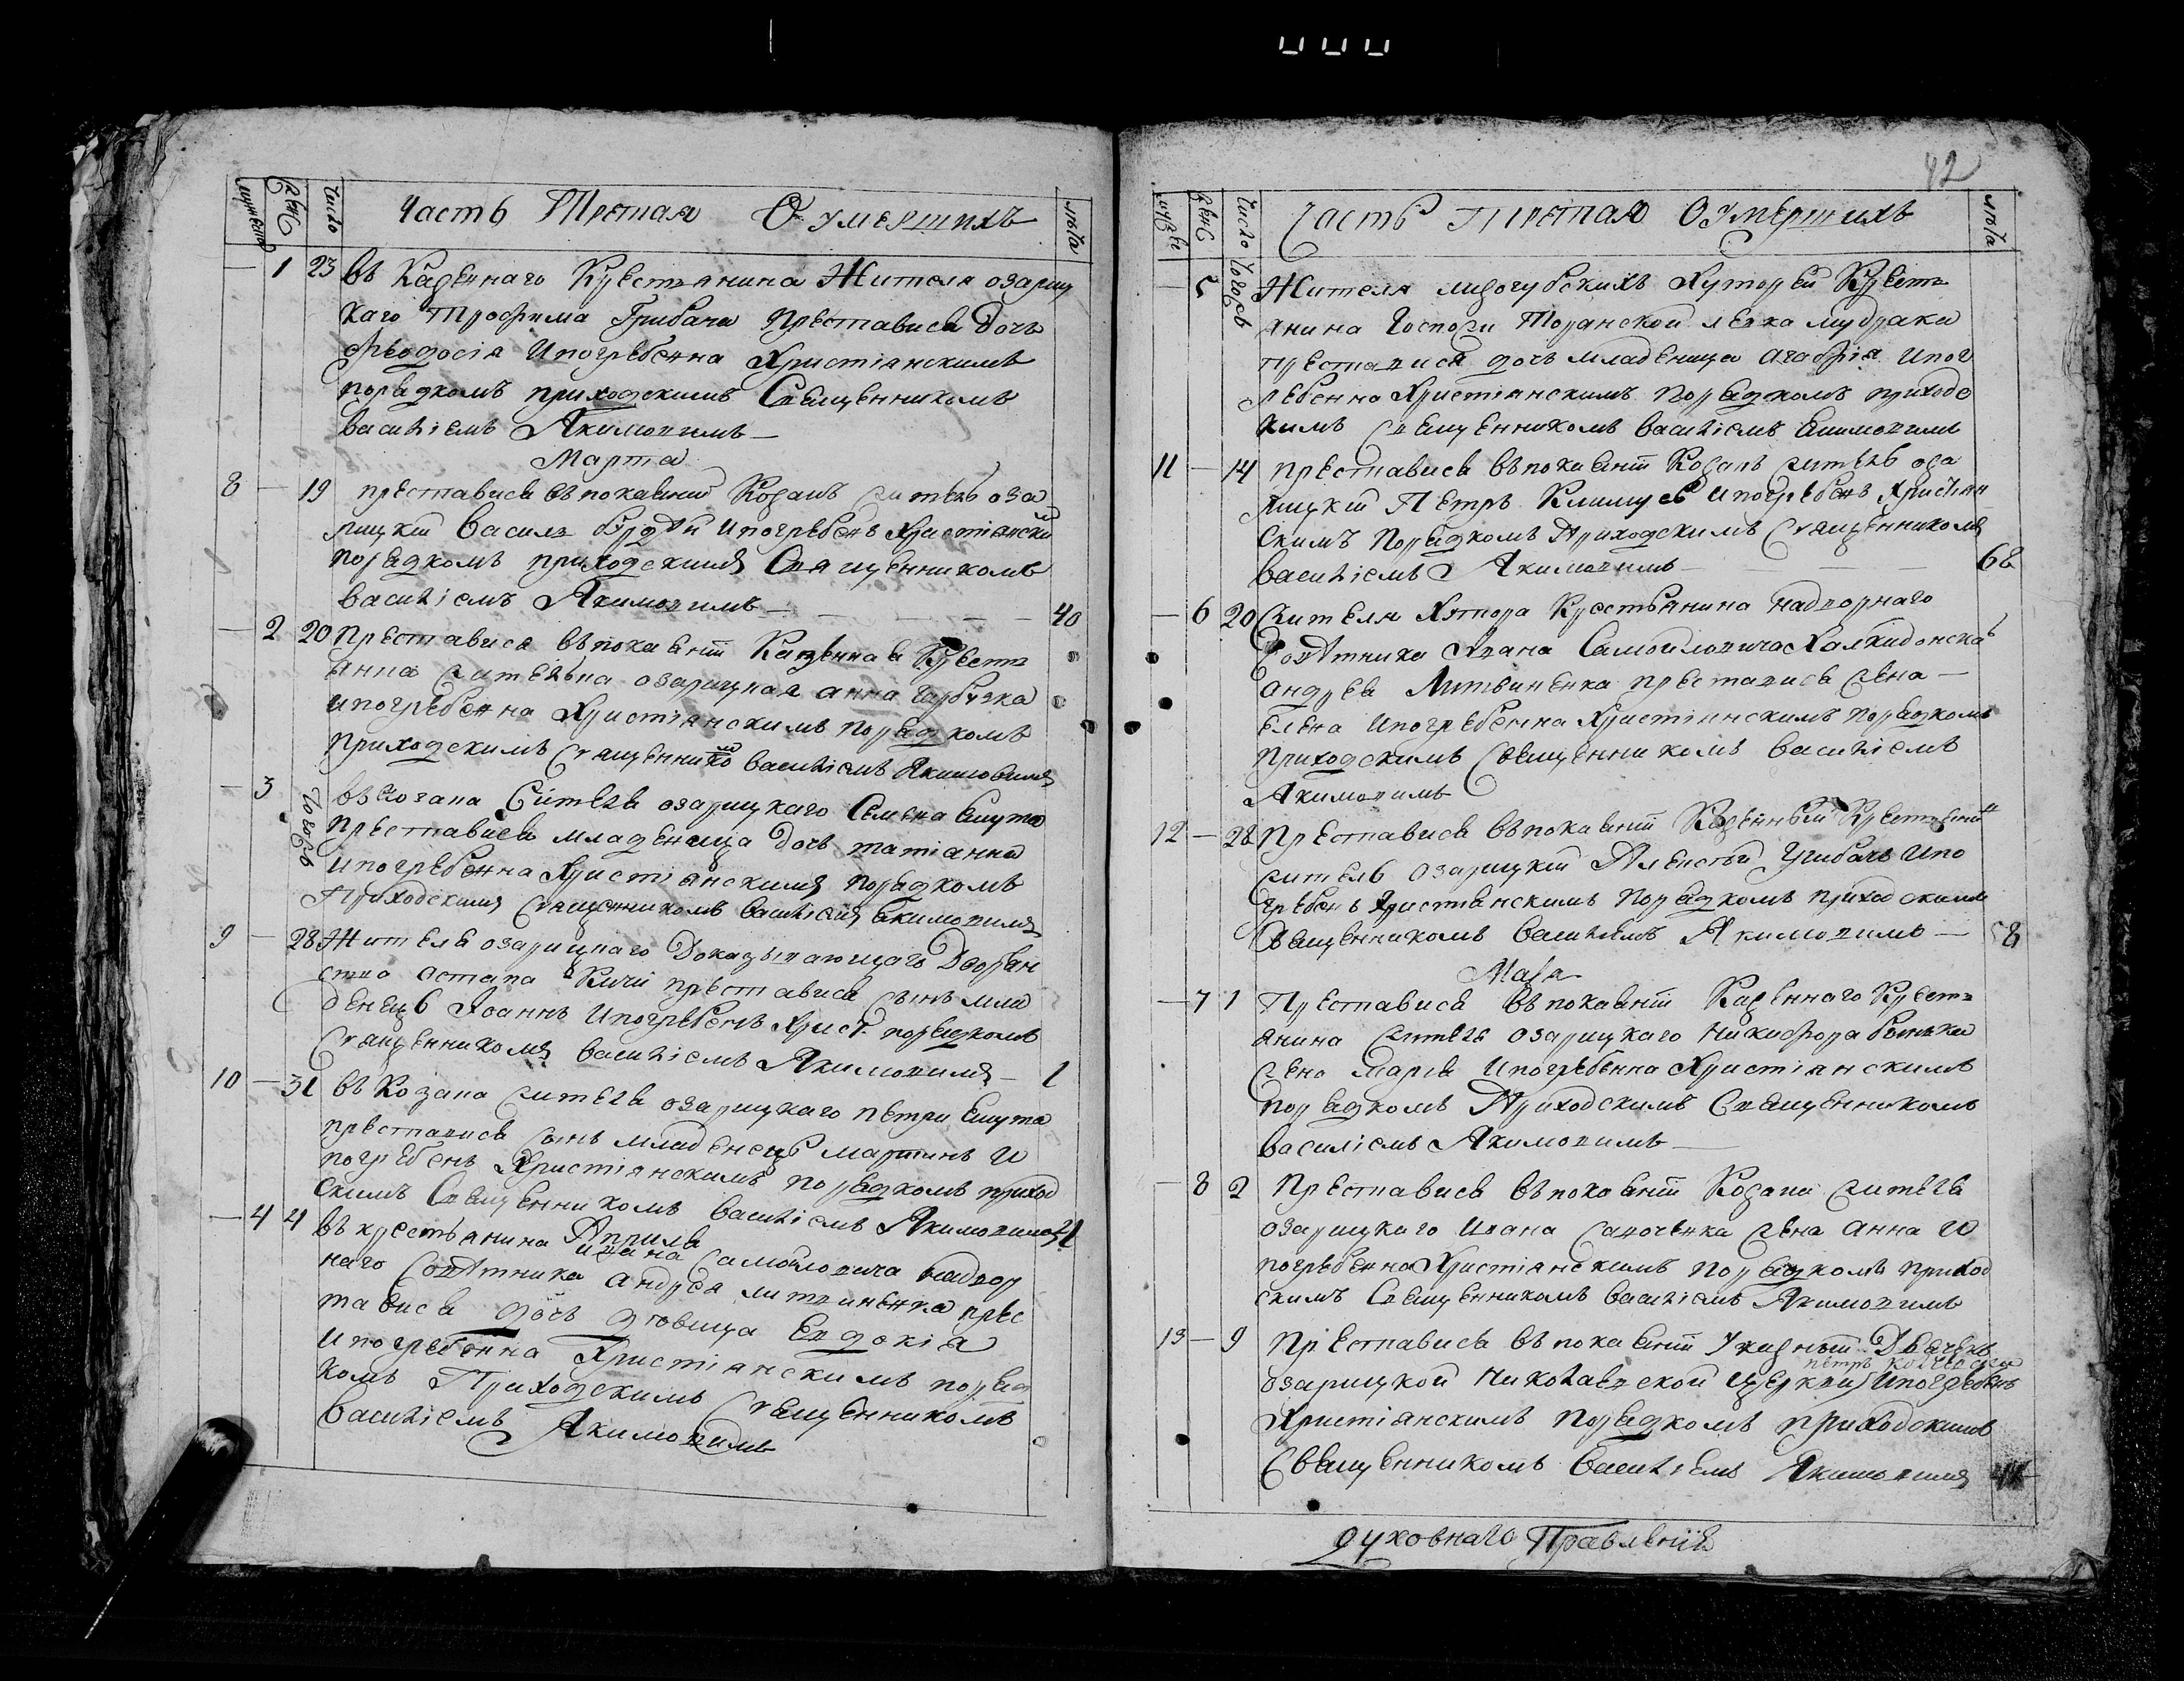 Часть Третая О умершихъ
мужеска
женс
число
лѣта
1 23 въ Казеннаго Крестянина Жителя озариц
каго Трофима Грибача Преставися дочъ
Феодосія Ипогребенна Христіянскимъ
порядкомъ приходскимъ Священникомъ
Василіемъ Якимовимъ
Марта
8 19 преставися въ покаянии Козакъ житель оза
рицкій Василъ Ипогребенъ Християнски
порядкомъ приходскимъ Священникомъ
василіемъ Якимовимъ 40
2 20 Преставися въ покаянії Казенная Крестя
янка жителька озарицкая анна Гарбузка
ипогребенна Христіянскимъ порядкомъ
приходскимъ священникомъ василіемъ Якимовимъ
3 тогожъ въ Козака жителя озарицкаго Семена
Преставися младеница дочъ татіанна
ипогребенна Христіянскимъ порядкомъ
Приходскимъ священникомъ василіемъ якимовимъ
9 28 Жителя озарицкаго Доказывающаго Дворян
ство остапа преставися сынъ мла
денецъ Иоаннъ Ипогребенъ Христ порядкомъ
священникомъ василіемъ Якимовимъ 1
10 31 въ Козака жителя озарицкаго петра
преставися сынъ младенецъ мартинъ и
погребенъ Христіянскимъ порядкомъ приход
скимъ Священникомъ василіемъ Якимовимъ 1
Априля
4 4 въ крестьянина ивана Самойловича надвор
наго Совѣтника андрея литвиненка прес
тавися дочъ дѣвица Евдокія
ипогребенна Христіянскимъ поряд
комъ Приходскимъ священникомъ
Василіемъ Якимовимъ
42
Часть Третая О Умершихъ
мужеск
женс
число
лѣта
5 тогожъ Жителя лизогубскихъ Хуторей Крестъ
янина Госпожи
преставися дочъ младеница агафія ипог
ребенна Христіянскимъ порядкомъ приходс
кимъ священникомъ василіемъ якимовимъ
11 14 преставися въ покаянії Козакъ житель оза
рицкій Петръ ипогребенъ Христіян
скимъ порядкомъ Приходскимъ священникомъ
василіемъ Якимовимъ 68
6 20 жителя Хутора Крестьянина надворнаго
Совѣтника Ивана Самойловича
андрея Литвиненка преставися жена
елена ипогребенна Христіянскимъ порядкомъ
приходскимъ священникомъ василіемъ
Якимовимъ
12 28 Преставися въ покаянії Казенный Крестянинъ
житель озарицкій Алексѣй Грибачъ ипо
гребенъ Християнскимъ порядкомъ приходскимъ
священникомъ василіемъ Якимовимъ 58
Маія
7 1 Преставися въ покаянії Казеннаго Крестъ
янина жителя озарицкаго Никифора
жена Марія Ипогребенна Христіянскимъ
порядкомъ Приходскимъ Священникомъ
василіемъ Якимовимъ
8 2 Преставися въ покаянії Козака жителя
озарицкаго Ивана Савченка жена анна и
погребенна Христіянскимъ порядкомъ приход
скимъ Священникомъ василіемъ Якимовимъ
13 9 Преставися въ покаянії Указный Дьячекъ
озарицкой Николаевской церкви петръ ипогребенъ
Христіянскимъ порядкомъ приходскимъ
Священникомъ василіемъ Якимовимъ
Духовнаго Правленія